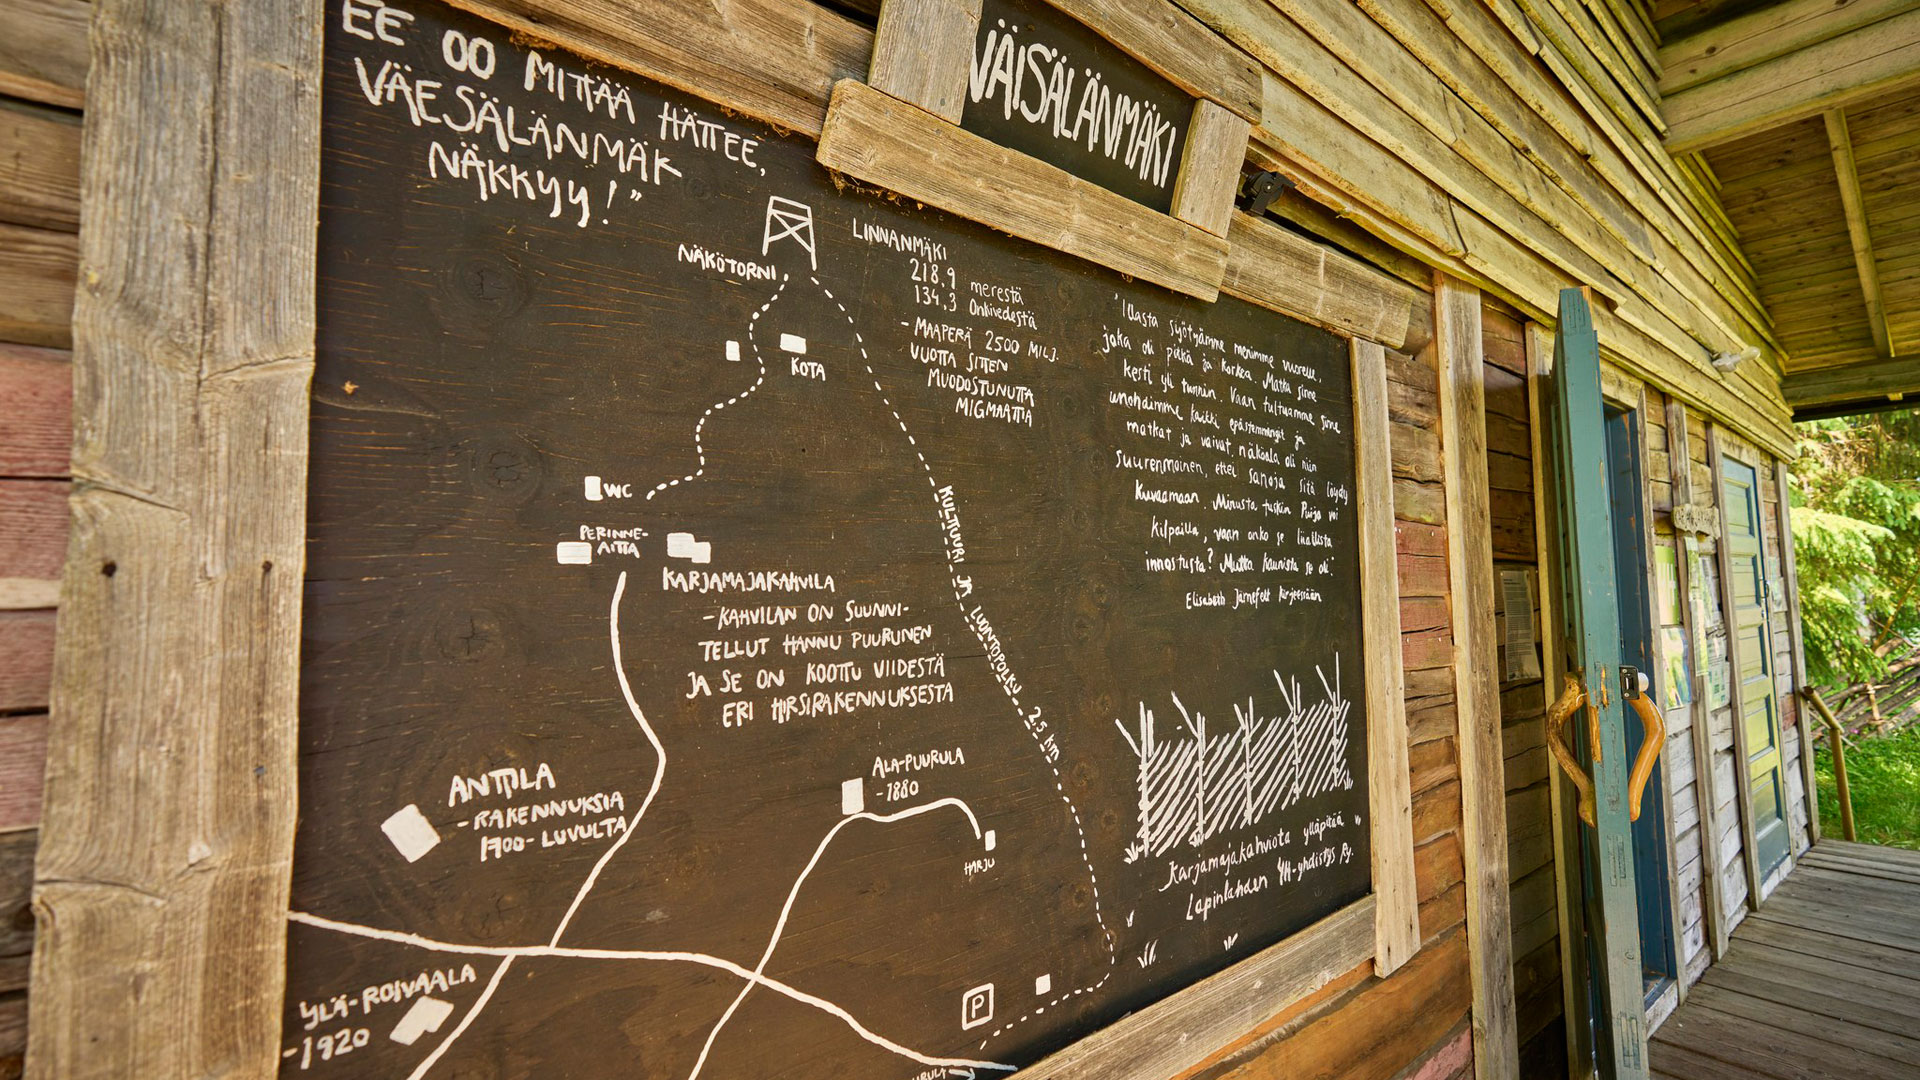 EE OO MITTÄÄ HÄTTEE,
VÄESÄLÄNMÄK
NÄKKYY!"
VÄISÄLÄNMÄKI
NÄKÖTORNI
LINNANMÄKI
218,9 merestä
134,3 Onkivedestä
- MAAPERÄ 2500 MILJ.
VUOTTA SITTEN
MUODOSTUNUTTA
MIGMAATTIA
KOTA
WC
PERINNE-
AITTA
KARJAMAJAKAHVILA
- KAHVILAN ON SUUNNI-
TELLUT HANNU PUURUNEN
JA SE ON KOOTTU VIIDESTÄ
ERI HIRSIRAKENNUKSESTA
KULTTUURI JA LUONTOPOLKU 2,5 km
"Illasta syötyämme menimme vuorelle,
joka oli pitkä ja korkea. Matka sinne
kesti yli tunnin. Vaan tultuamme sinne
unohdimme kaikki epästemmingit ja
matkat ja vaivat, näköala oli niin
suurenmoinen, ettei sanoja sitä löydy
kuvaamaan. Minusta tuskin Puijo voi
kilpailla, vaan onko se liiallista
innostusta? Mutta kaunista se oli."
Elisabeth Järnefelt kirjeessään
ANTTILA
- RAKENNUKSIA
1700-LUVULTA
ALA-PUURULA
-1880
HARJU
Karjamajakahviota ylläpitää
Lapinlahden 4H-yhdistys Ry.
YLÄ-ROIVAALA
-1920
P